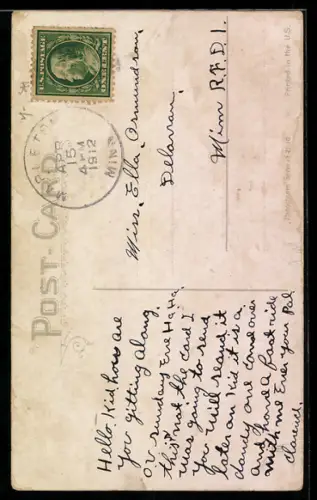 POST-CARD
U.S. POSTAGE
ONE CENT
APPLETON
APR
15
4 PM
1912
MINN.
Miss. Ella. Amundson,
Delavan.
Minn R.F.D.1.
Printed in the U.S.
Hello Kid how are
you gitting along.
ov sundays Eve Ha Ha.
this not the card I
was going to send
you will resend it
later an kid it is a
dandy and come over
and have a boat ride
with me Ever your Pal
Clarence.